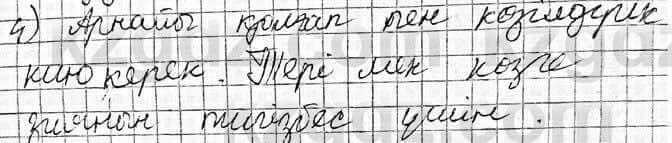 4) Арнайы қолғап пен көзілдірік
кию керек. Тері мен көзге
зиянын тигізбес үшін.